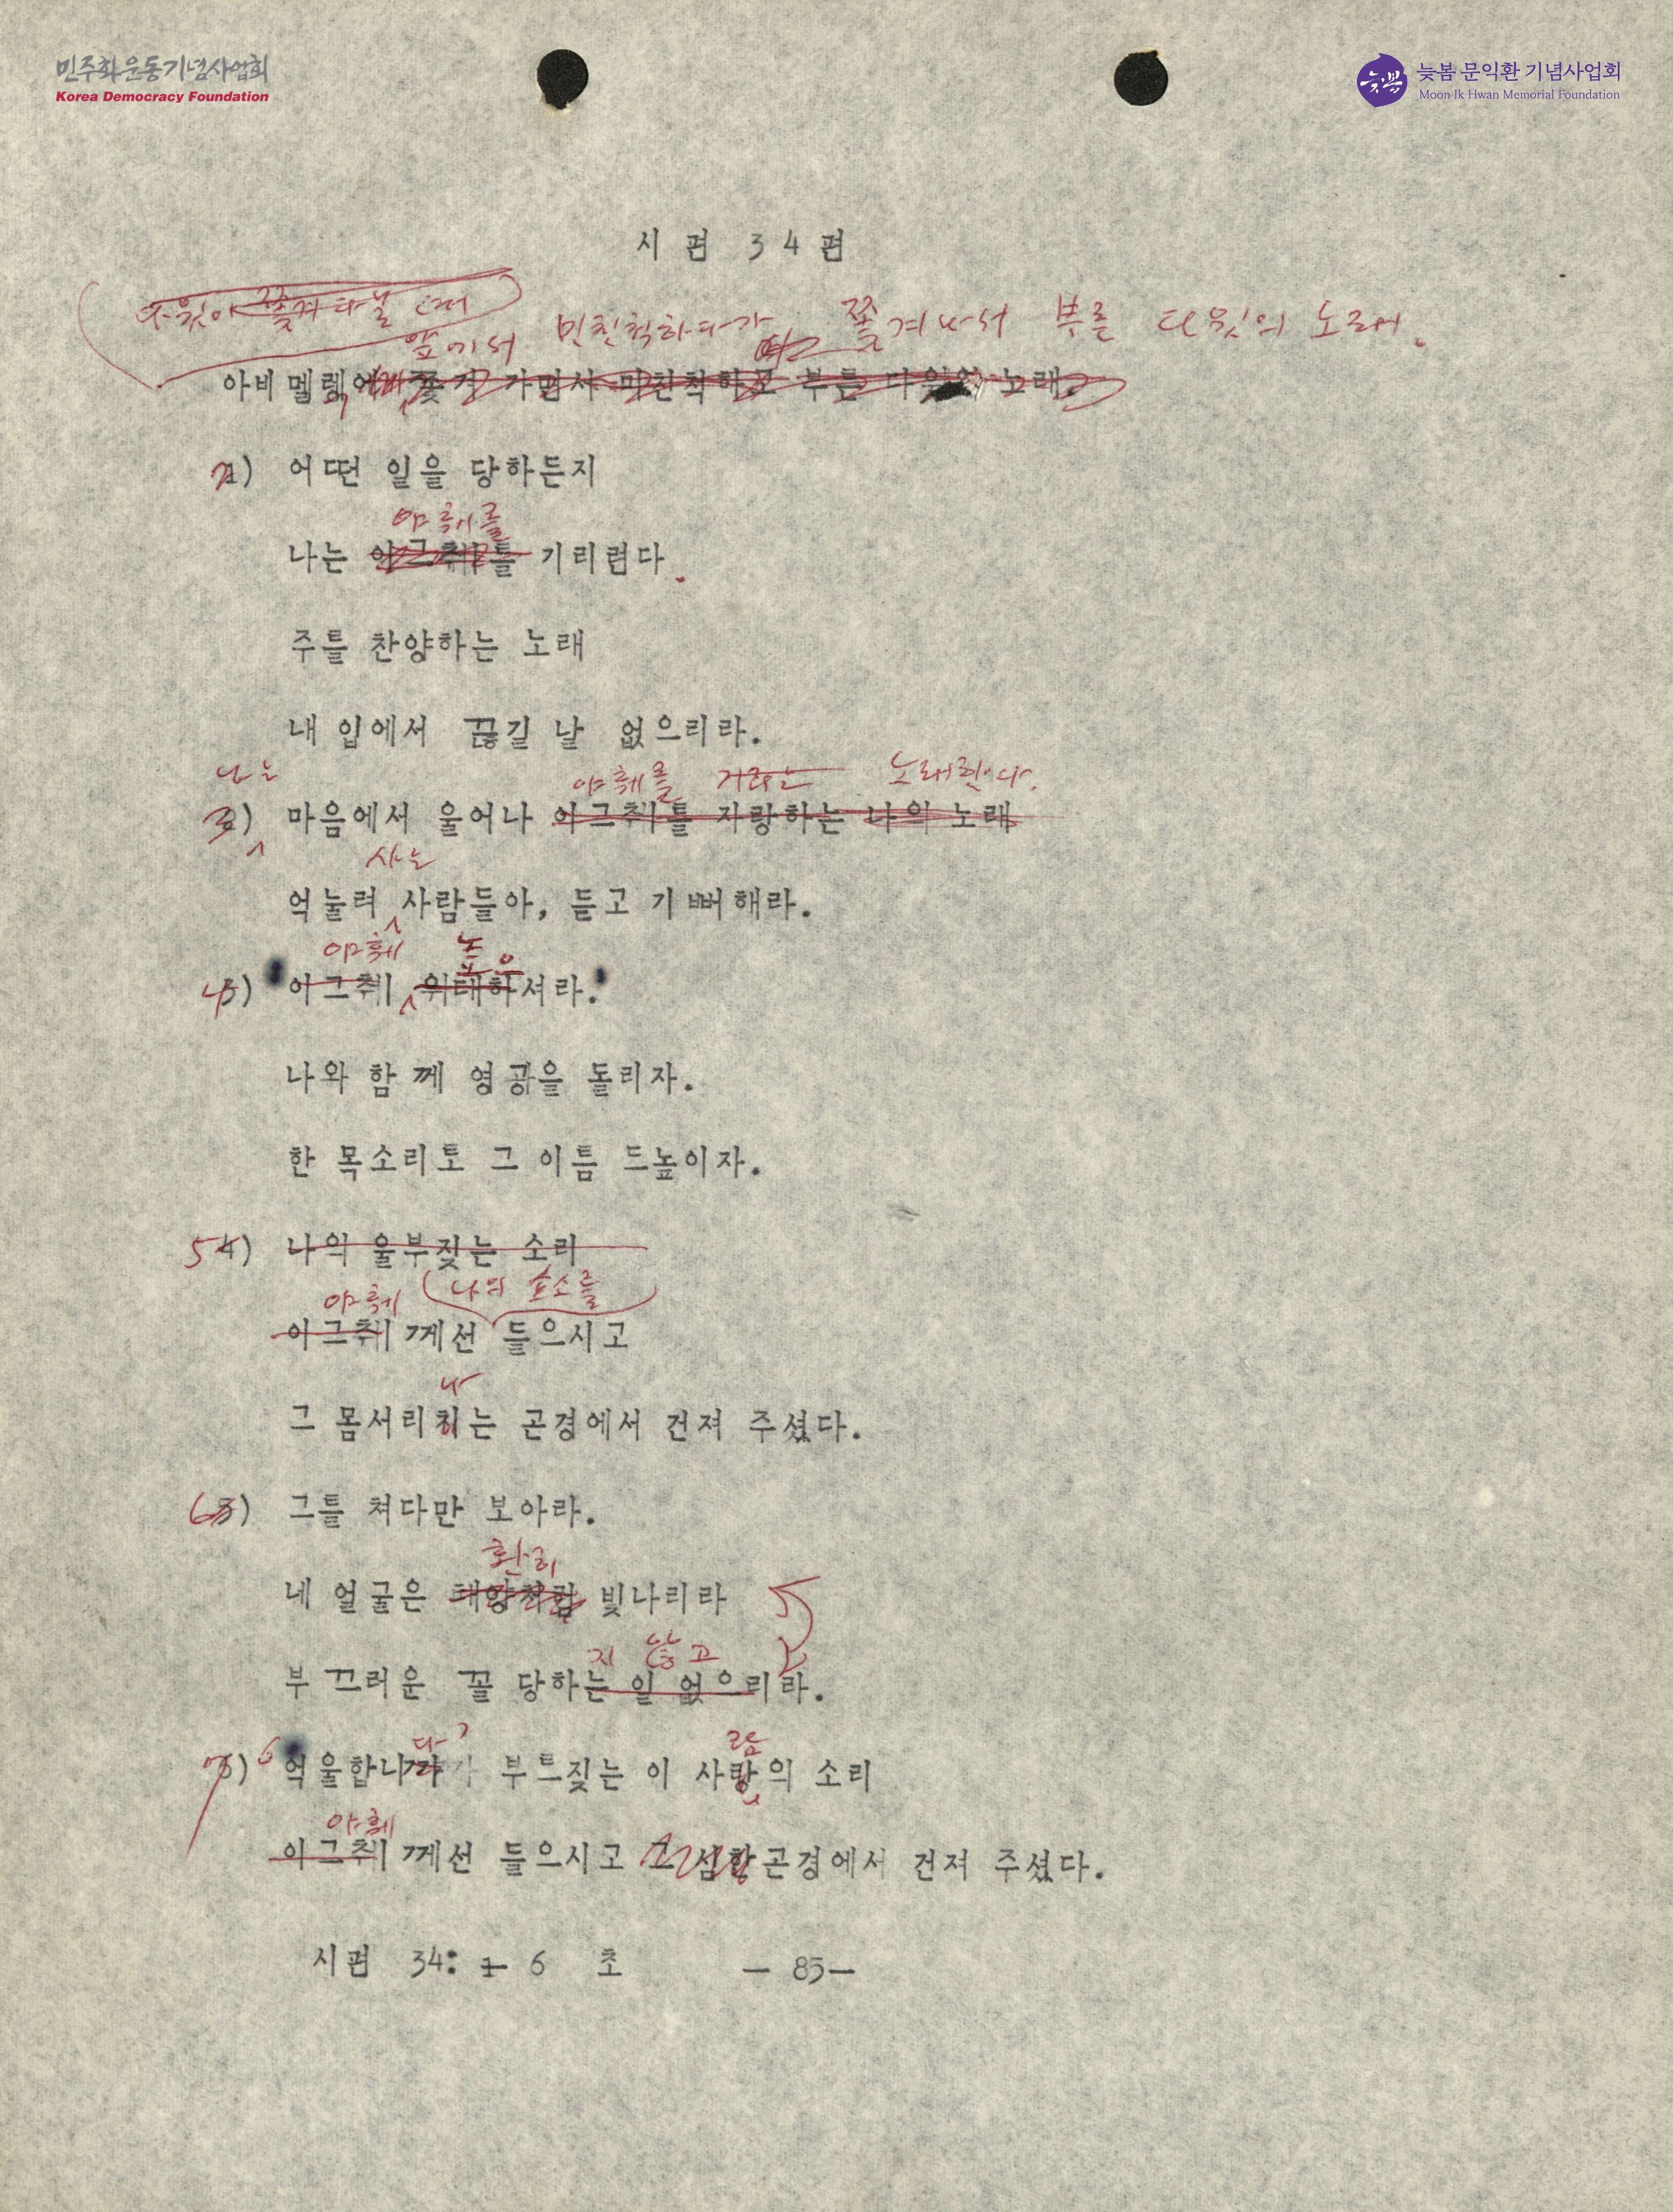 민주화운동기념사업회
Korea Democracy Foundation
늦봄
늦봄 문익환 기념사업회
Moon Ik Hwan Memorial Foundation
시 편 3 4 편
다윗이 쫓겨다닐 때
앞에서 미친척하다가 쫓겨나서 부른 다윗의 노래.
아비멜렉에게 쫓겨 가면서 미친척하고 부른 다윗의 노래.
2) 어떤 일을 당하든지
야훼를
나는 야그훼를 기리련다.
주를 찬양하는 노래
내 입에서 끊길 날 없으리라.
나는 야훼를 노래한다.
3) 마음에서 울어나 야그훼를 자랑하는 나의 노래
사는
억눌려 사람들아, 듣고 기뻐해라.
야훼 높으
4) 야그훼 위대하셔라.
나와 함께 영광을 돌리자.
한 목소리로 그 이름 드높이자.
54) 나의 울부짖는 소리
야훼 나의 호소를
야그훼께선 들으시고
나
그 몸서리치는 곤경에서 건져 주셨다.
65) 그를 쳐다만 보아라.
환히
네 얼굴은 태양처럼 빛나리라
지 않고
부끄러운 꼴 당하는 일 없으리라.
6 다 람
7) 억울합니까 부르짖는 이 사람의 소리
야훼
야그훼께선 들으시고 그 심한 곤경에서 건져 주셨다.
시편 34: 1- 6 초 - 85-